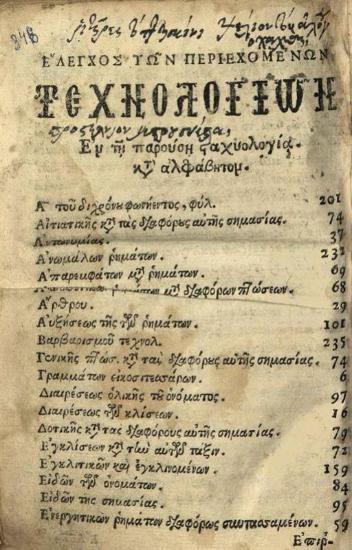 348
ΕΛΕΓΧΟΣ ΤΩΝ ΠΕΡΙΕΧΟΜΕΝΩΝ
ΤΕΧΝΟΛΟΓΙΩΝ
Ἐν τῇ παρούσῃ ταχυολογίᾳ.
κτ᾽ ἀλφάβητον.
Α τοῦ διχρόνου φωνήεντος, φύλ. 201
Αἰτιατικῆς κτ᾽ τὰς διαφόρους αὐτῆς σημασίας. 74
Ἀντωνυμίας. 37
Ἀνωμάλων ῥημάτων. 232
Ἀπαρεμφάτων ῥημάτων. 69
διαφόρων πτώσεων. 68
Ἄρθρου. 29
Αὐξήσεως τῆς τῶν ῥημάτων. 101
Βαρβαρισμοῦ τεχνολ. 235
Γενικῆς πτώσ. κτ᾽ τὰς διαφόρους αὐτῆς σημασίας. 74
Γραμμάτων εἰκοσιτεσσάρων. 6
Διαιρέσεως ὁλικῆς τοῦ ὀνόματος. 97
Διαιρέσεως τῶν κλίσεων. 16
Δοτικῆς κτ᾽ τὰς διαφόρους αὐτῆς σημασίας. 79
Ἐγκλίσεων κτ᾽ τὴν αὐτῶν τάξιν. 72
Ἐγκλιτικῶν καὶ ἐγκλινομένων. 159
Εἰδῶν τῶν ὀνομάτων. 84
Εἰδῶν τῆς σημασίας. 95
Ἐνεργητικῶν ῥημάτων διαφόρως συντασσομένων. 59
Ἐπιρ-